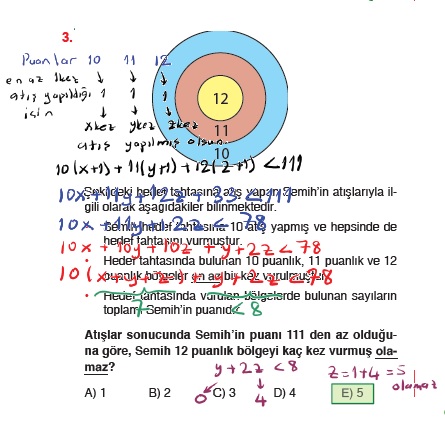 3.
Puanlar 10 11 12
en az 1kez ↓ ↓ ↓
atış yapıldığı 1 1 1
için ↓ ↓ ↓
xkez ykez zkez
atış yapılmış olsun.
12
11
10
10(x+1)+11(y+1)+12(z+1)<111
Şekildeki hedef tahtasına atış yapan Semih'in atışlarıyla il-
gili olarak aşağıdakiler bilinmektedir.
10x+11y+12z+33<111
Semih hedef tahtasına 10 atış yapmış ve hepsinde de
hedef tahtasını vurmuştur.
10x+11y+12z<78
10x+10y+10z+y+2z<78
Hedef tahtasında bulunan 10 puanlık, 11 puanlık ve 12
puanlık bölgeler en az bir kez vurulmuştur.
10(x+y+z)+y+2z<78
Hedef tahtasında vurulan bölgelerde bulunan sayıların
toplamı Semih'in puanıdır.
7
<8
Atışlar sonucunda Semih'in puanı 111 den az olduğu-
na göre, Semih 12 puanlık bölgeyi kaç kez vurmuş ola-
maz?
y+2z<8
0 4
z=1+4=5
olamaz
A) 1 B) 2 C) 3 D) 4 E) 5